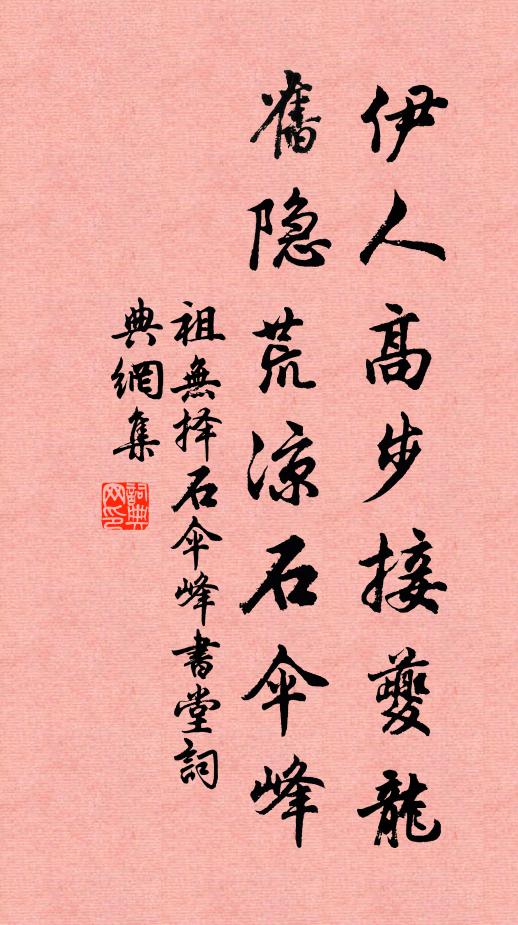 伊人高步接夔龍
舊隐荒涼石伞峰
祖無择石伞峰書堂詞
典網集
詞典
网印